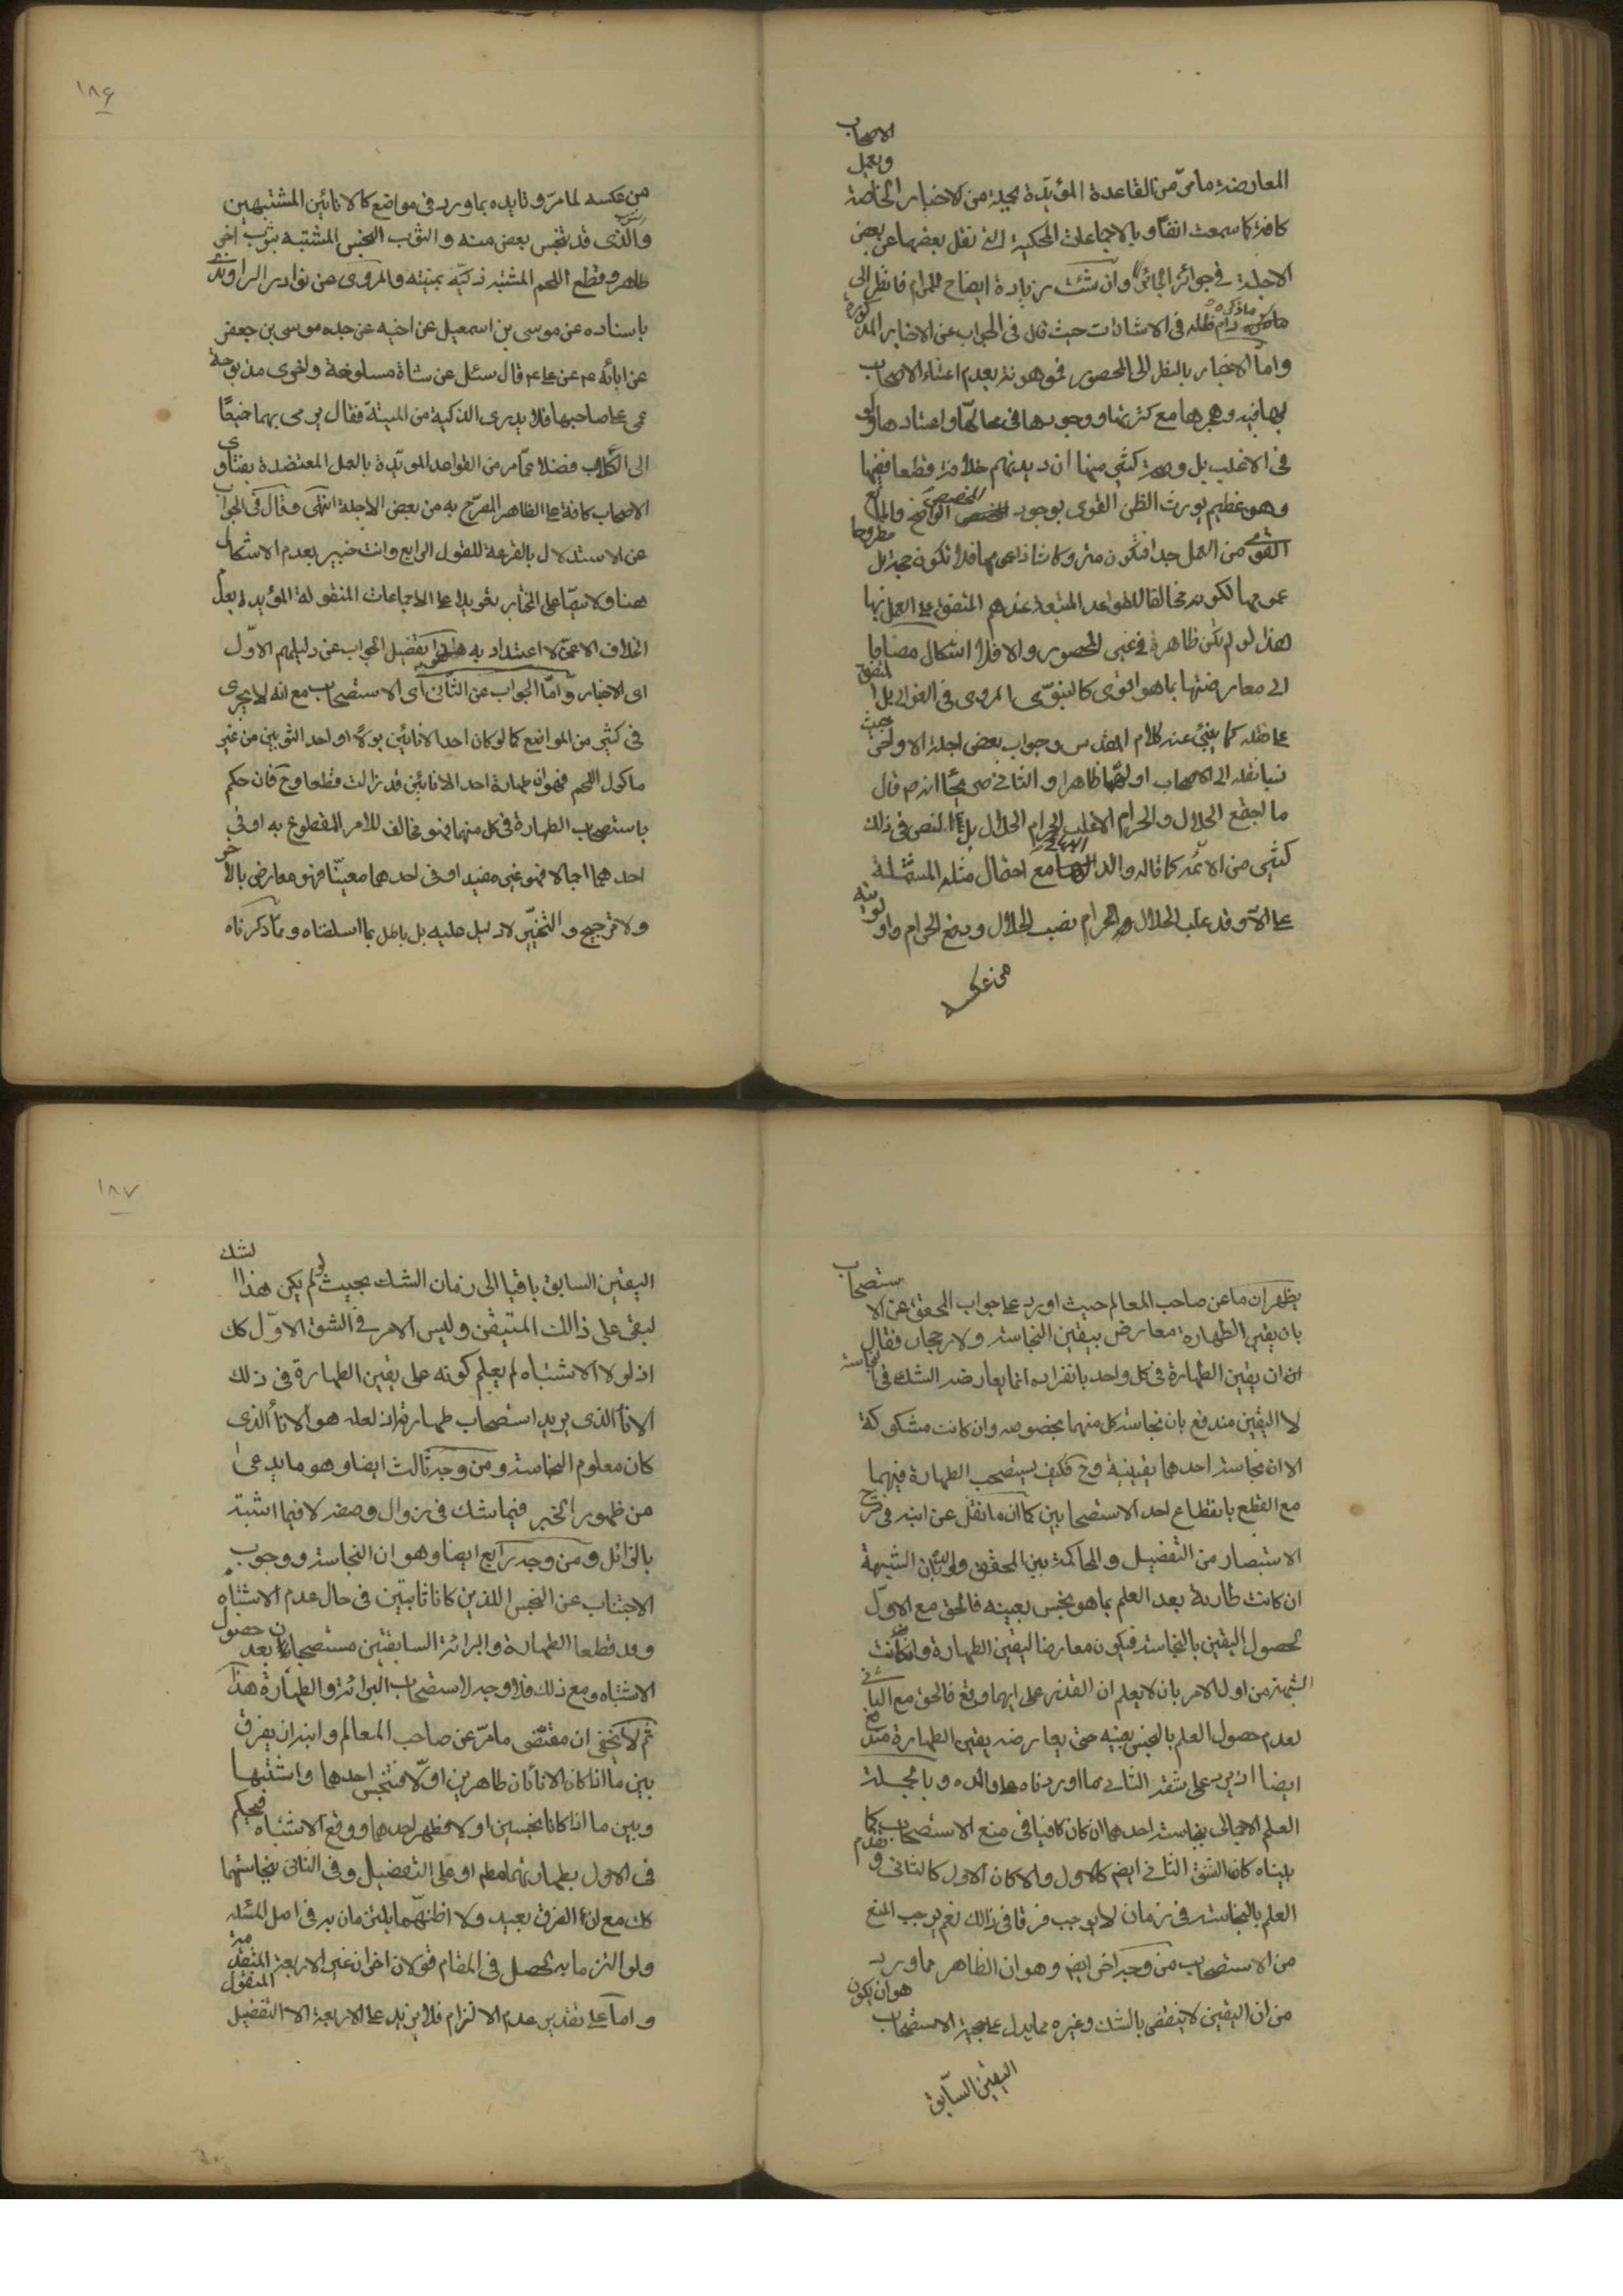 المعارضة مامرّ من القاعدة المؤيّدة بجملة من الاخبار الخاصة وبعمل الاصحاب
كافة كما سمعت انفا وبالاجماعات المحكية التى نقل بعضها عن بعض
الاجلة فى جوائز الجائر وان شئت زيادة ايضاح للمرام فانظر الى
ماذكره دام ظله فى الاشارات حيث قال فى الجواب عن الاخبار المذكورة
واما الاخبار بالنظر الى المحصور فموهونة بعدم اعتناء الاصحاب
بها فيه وهجرها مع كثرتها ووجودها فى محالها واعتبارها ولو
فى الاغلب بل وصحة كثير منها ان ديدنهم خلافه قطعا فيها
وهو عظيم يورث الظن القوى بوجود المخصص الواضح والمانع
القوى من العمل جدا فتكون متروكا شاذا مطروحا فلا تكون حجة بل
عمومها لكونه مخالفا للقواعد المتبعة عندهم المتفق على العمل بها
هذا لو لم تكن ظاهرة فى غير المحصور والا فلا اشكال مضافا
الى معارضتها بما هو اقوى كالنبوى المروى فى الغوالى بل المتفق
على نقله كما ينبئ عنه كلام المقدس وجواب بعض اجلة الاواخر حيث
نسبا نقله الى الاصحاب اولهما ظاهرا والثانى صريحا انه ص قال
ما اجتمع الحلال والحرام الا غلب الحرام الحلال بل النص فى ذلك
كثير من الائمة كما قاله والد مع احتمال مثله المشتملة
على الا وقد غلب الحلال الحرام بنصب الحلال ورفع الحرام واولويته
من عكسه
١٨۶
من عكسه لما مرّ وتايده بما ورد فى مواضع كالانائين المشتبهين
والذى قد تنجس بعض منه والثوب النجس المشتبه بثوب اخر
طاهر وقطع اللحم المشتبه ذكيّه بميته والمروى عن نوادر الراوندى
باسناده عن موسى بن اسمعيل عن ابيه عن جده موسى بن جعفر
عن ابائه ع عن على ع قال سئل عن شاة مسلوخة واخرى مذبوحة
عمى على صاحبها فلا يدرى الذكية من الميتة فقال يرمى بهما جميعًا
الى الكلاب فضلا عمّا مر من القواعد المويّدة بالعمل المعتضدة بفتاوى
الاصحاب كافة على الظاهر المصرّح به من بعض الاجلة انتهى وقال فى الجواب
عن الاستدلال بالقرعة للقول الرابع وانت خبير بعدم الاشكال
هنا ولا سيّما على المختار تعويلا على الاجماعات المنقولة المؤيدة بعدم
الخلاف الا عمّن لا اعتداد به هذا تفصيل الجواب عن دليلهم الاوّل
اى الاخبار وامّا الجواب عن الثانى اى الاستصحاب مع انه لا يجرى
فى كثير من المواضع كما لو كان احد الانائين بولاً او احد الثوبين من غير
ماكول اللحم فهو ان طهارة احد الانائين قد زالت قطعا وح فان حكم
باستصحاب الطهارة فى كل منهما فهو مخالف للامر المقطوع به او فى
احدهما اجمالا فهو غير مفيد او فى احدهما معيّنا فهو معارض بالاخر
ولا ترجيح والتخيّر لا دليل عليه بل باطل بما اسلفناه وممّا ذكرناه
يظهر ان ما عن صاحب المعالم حيث اورد على جواب المحقق عن الاستصحاب
بان يقين الطهارة معارض بيقين النجاسة ولا رجحان فقال
ان يقين الطهارة فى كل واحد بانفراده انما يعارضه الشك فى النجاسة
لا اليقين مندفع بان نجاسة كل منهما بخصوصه وان كانت مشكوكة
الا ان نجاسة احدهما يقينية وح فكيف يستصحب الطهارة فيهما
مع القطع بانقطاع احد الاستصحابين كما ان ما نقل عن ابنه فى شرح
الاستبصار من التفصيل والمحاكمة بين المحقق بان الشبهة
ان كانت طارية بعد العلم بما هو نجس بعينه فالحق مع الاوّل
لحصول اليقين بالنجاسة فيكون معارضا ليقين الطهارة وان كانت
الشبهة من اول الامر بان لا يعلم ان القذر على ايهما وقع فالحق مع الثانى
لعدم حصول العلم بالنجس بعينه حتى يعارضه يقين الطهارة مندفع
ايضا اذ يرد على شقه الثانى مما اوردناه على والده وبالجملة
العلم الاجمالى بنجاسة احدهما ان كان كافيا فى منع الاستصحاب كما
بيناه كان الشق الثانى ايضا كالاول والا كان الاول كالثانى وتقدم
العلم بالنجاسة فى زمان لا يوجب فرقا فى ذلك نعم يوجب المنع
من الاستصحاب من وجه اخر ايضا وهو ان الظاهر مما ورد
من ان اليقين لا ينقض بالشك وغيره مما يدل على حجية الاستصحاب هو ان يكون
اليقين السابق
١٨٧
اليقين السابق باقيا الى زمان الشك بحيث لو لم يكن هذا الشك
لبقى على ذالك المتيقن وليس الامر فى الشق الاوّل كك
اذ لولا الاشتباه لم يعلم كونه على يقين الطهارة فى ذلك
الاناء الذى يريد استصحاب طهارته اذ لعله هو الاناء الذى
كان معلوم النجاسة ومن وجه ثالث ايضا وهو ما يدعى
من ظهور الخبر فيما شك فى زوال وصفه لا فيما اشتبه
بالزائل ومن وجه رابع ايضا وهو ان النجاسة ووجوب
الاجتناب عن النجس اللذين كانا ثابتين فى حال عدم الاشتباه
قطعا الطهارة والبرائة السابقتين مستصحبان بعد حصول
الاشتباه ومع ذلك فلا وجه لاستصحاب البرائة والطهارة هذا
ثم لا يخفى ان مقتضى ما مرّ عن صاحب المعالم وابنه ان يفرق
بين ما اذا كان الاناءان طاهرين اوّلا فتنجس احدهما واشتبها
وبين ما اذا كانا نجسين اولا فطهر احدهما ووقع الاشتباه فيحكم
فى الاول بطهارتهما مطم او على التفصيل وفى الثانى بنجاستهما
كك مع ان الفرق بعيد ولا اظنّهما يلتزمان به فى اصل المسئلة
ولو التزما به لحصل فى المقام قولان اخران غير الاربعة المتقدمة
واما على تقدير عدم الالتزام فلا يزيد على الاربعة الا التفصيل المنقول